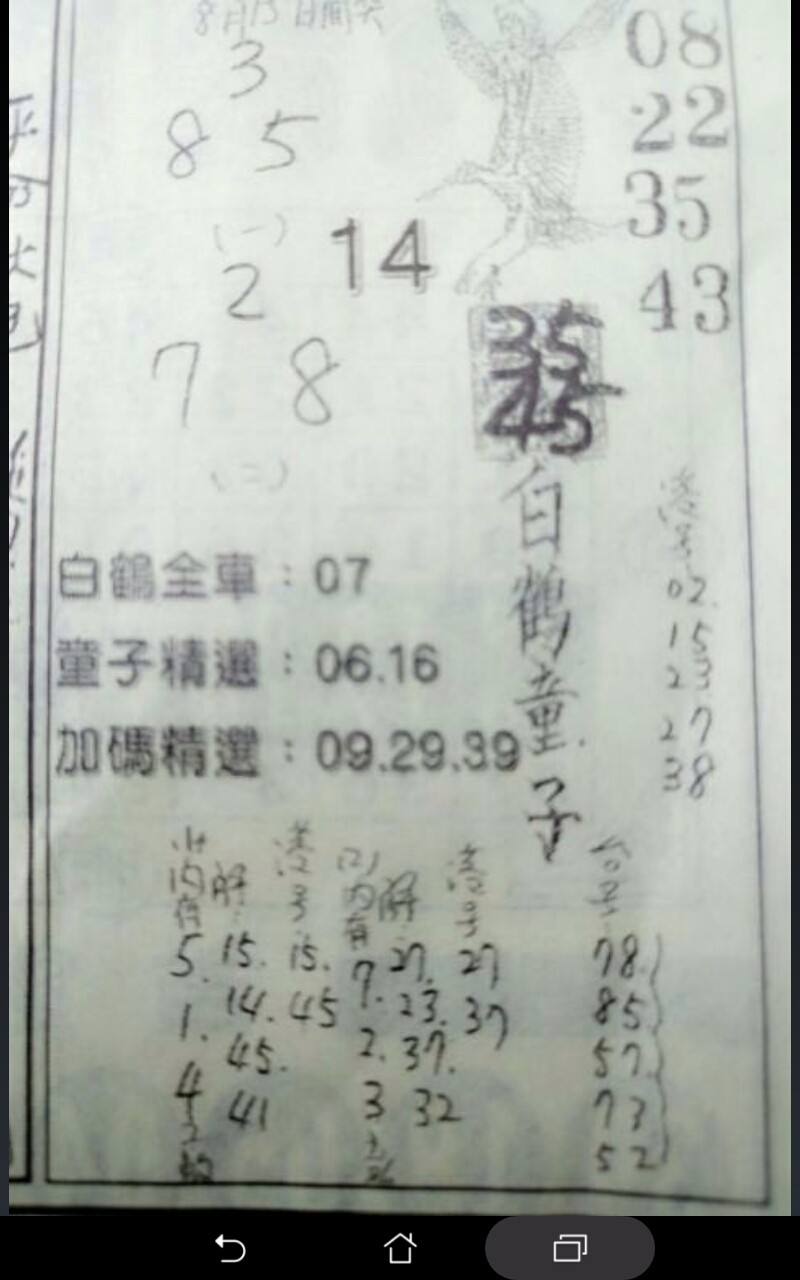 8月13日開
3
8 5
(一)
2
7 8
(二)
14
08
22
35
43
白鶴童子
白鶴全車：07
童子精選：06.16
加碼精選：09.29.39
港号
02.
15
23
27
38
內有 解 港号
5. 15. 15.
1. 14. 45
45.
4 41
(2)內有 解 港号
7. 27. 27
2. 23. 37
37.
3 32
78.
85
57.
73
52